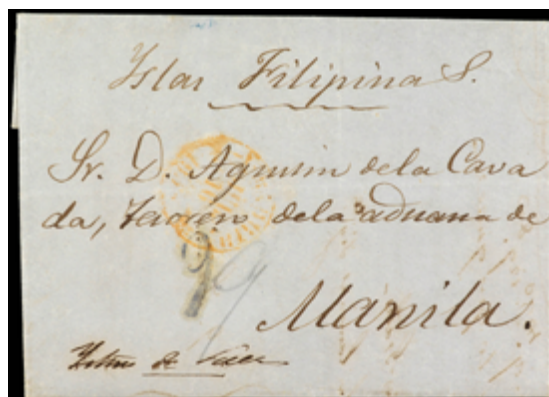 Yslas Filipinas.
Sr. D. Agustin dela Cava
da, Tesorero dela aduana de
Manila.
Ytsmo de Suez